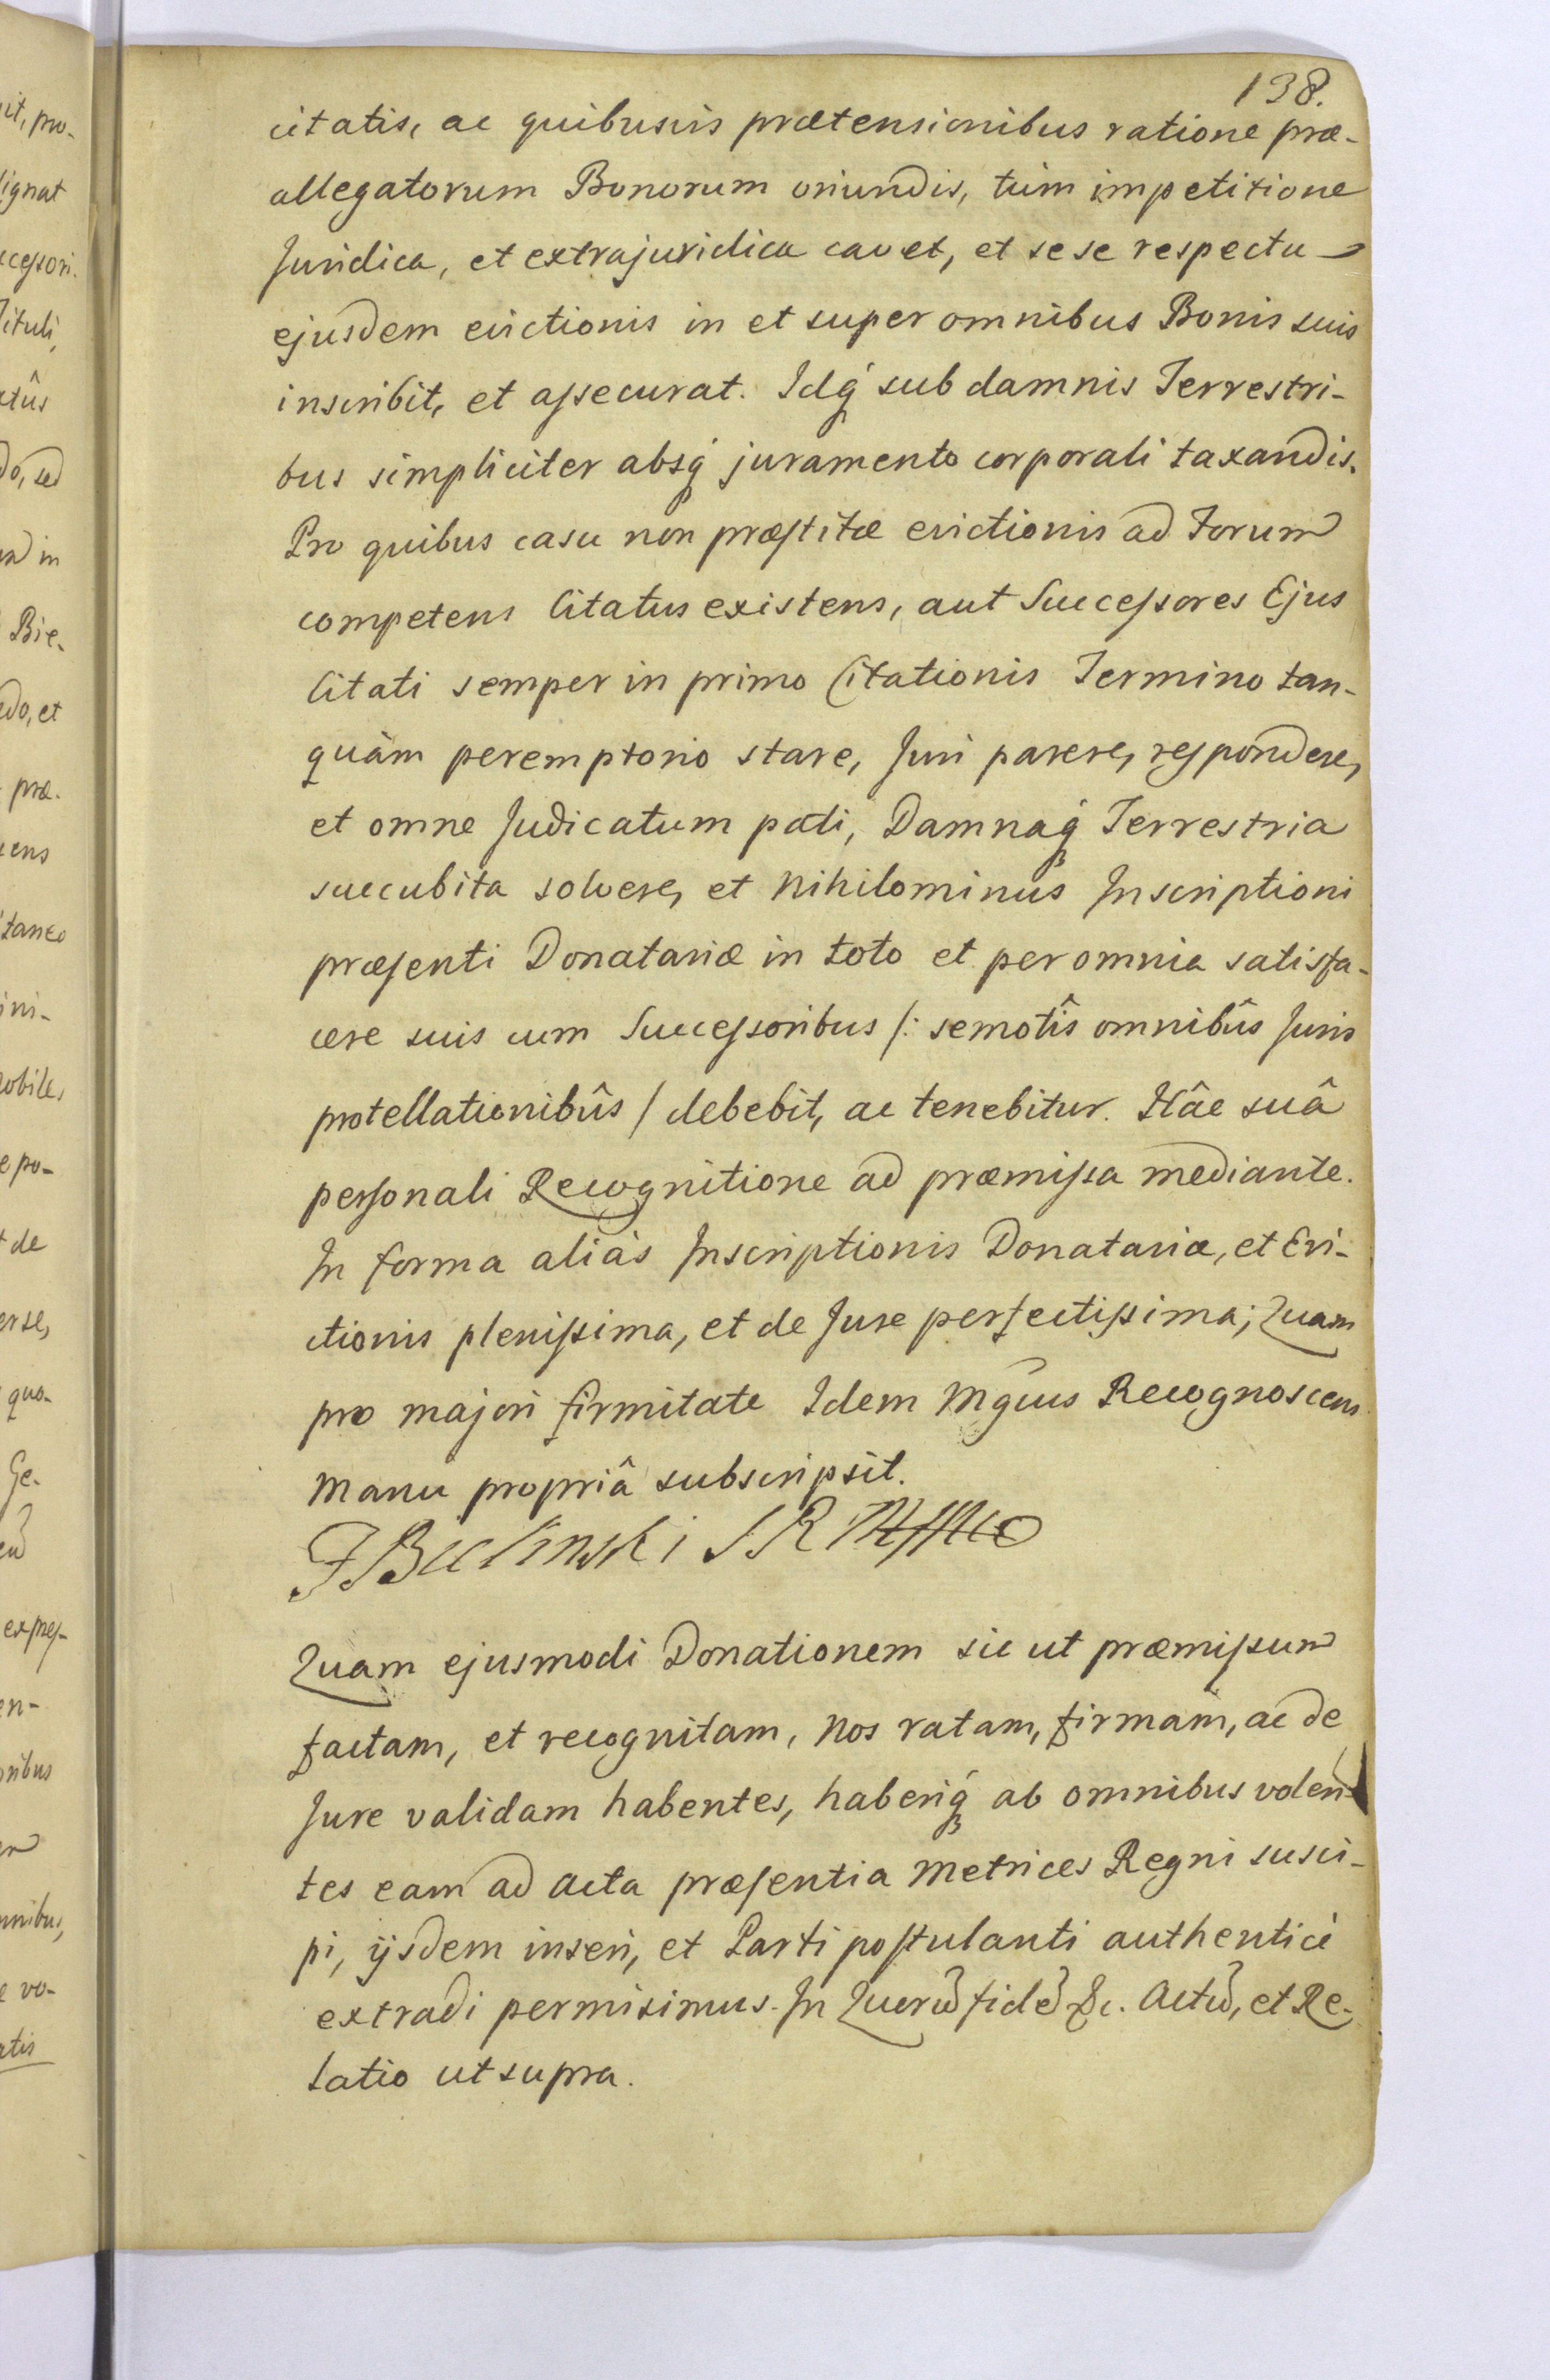 138.
citatis, ac quibusvis prætensionibus ratione præ-
allegatorum Bonorum oriundis, tùm impetitione
Juridica, et extrajuridica cavet, et sese respectu
ejusdem evictionis in et super omnibus Bonis suis
inscribit, et aſsecurat. Idq́ sub damnis Terrestri-
bus simpliciter absq́ juramento corporali taxandis.
Pro quibus casu non præſtitæ evictionis ad Forum
competens Citatus existens, aut Succeſsores Ejus
Citati semper in primo Citationis Termino tan-
quàm peremptorio stare, Juri parere, reſpondere,
et omne Judicatum pati, Damnaq́ Terrestria
succubita solvere, et nihilominus Inscriptioni
præſenti Donatariæ in toto et per omnia satisfa-
cere suis cum Succeſsoribus /: semotîs omnibûs Juris
protellationibûs / debebit, ac tenebitur. Hâc suâ
perſonali Recognitione ad præmiſsa mediante.
In forma aliàs Inscriptionis Donatariæ, et Evi-
ctionis pleniſsima, et de Jure perfectiſsima; Quam
pro majori firmitate Idem Mg̃cus Recognoscens
Manu propriâ subscripsit.
F Bielinski
Quam ejusmodi Donationem sic ut præmiſsum
factam, et recognitam, Nos ratam, firmam, ac de
Jure validam habentes, haberiq́ ab omnibus volen-
tes eam ad Acta præſentia Metrices Regni susci-
pi, ijsdem inseri, et Parti poſtulanti authenticè
extradi permisimus. In Quorũ fidẽ &c. Actũ, et Re-
latio ut supra.
it, pro-
ignat
cceſsori.
Tituli,
do, sed
in
Bie-
do, et
præ-
ens
taneo
ini-
nobile,
e po-
de
erse,
quo-
Ge-
expreſ-
en-
nibus,
e vo-